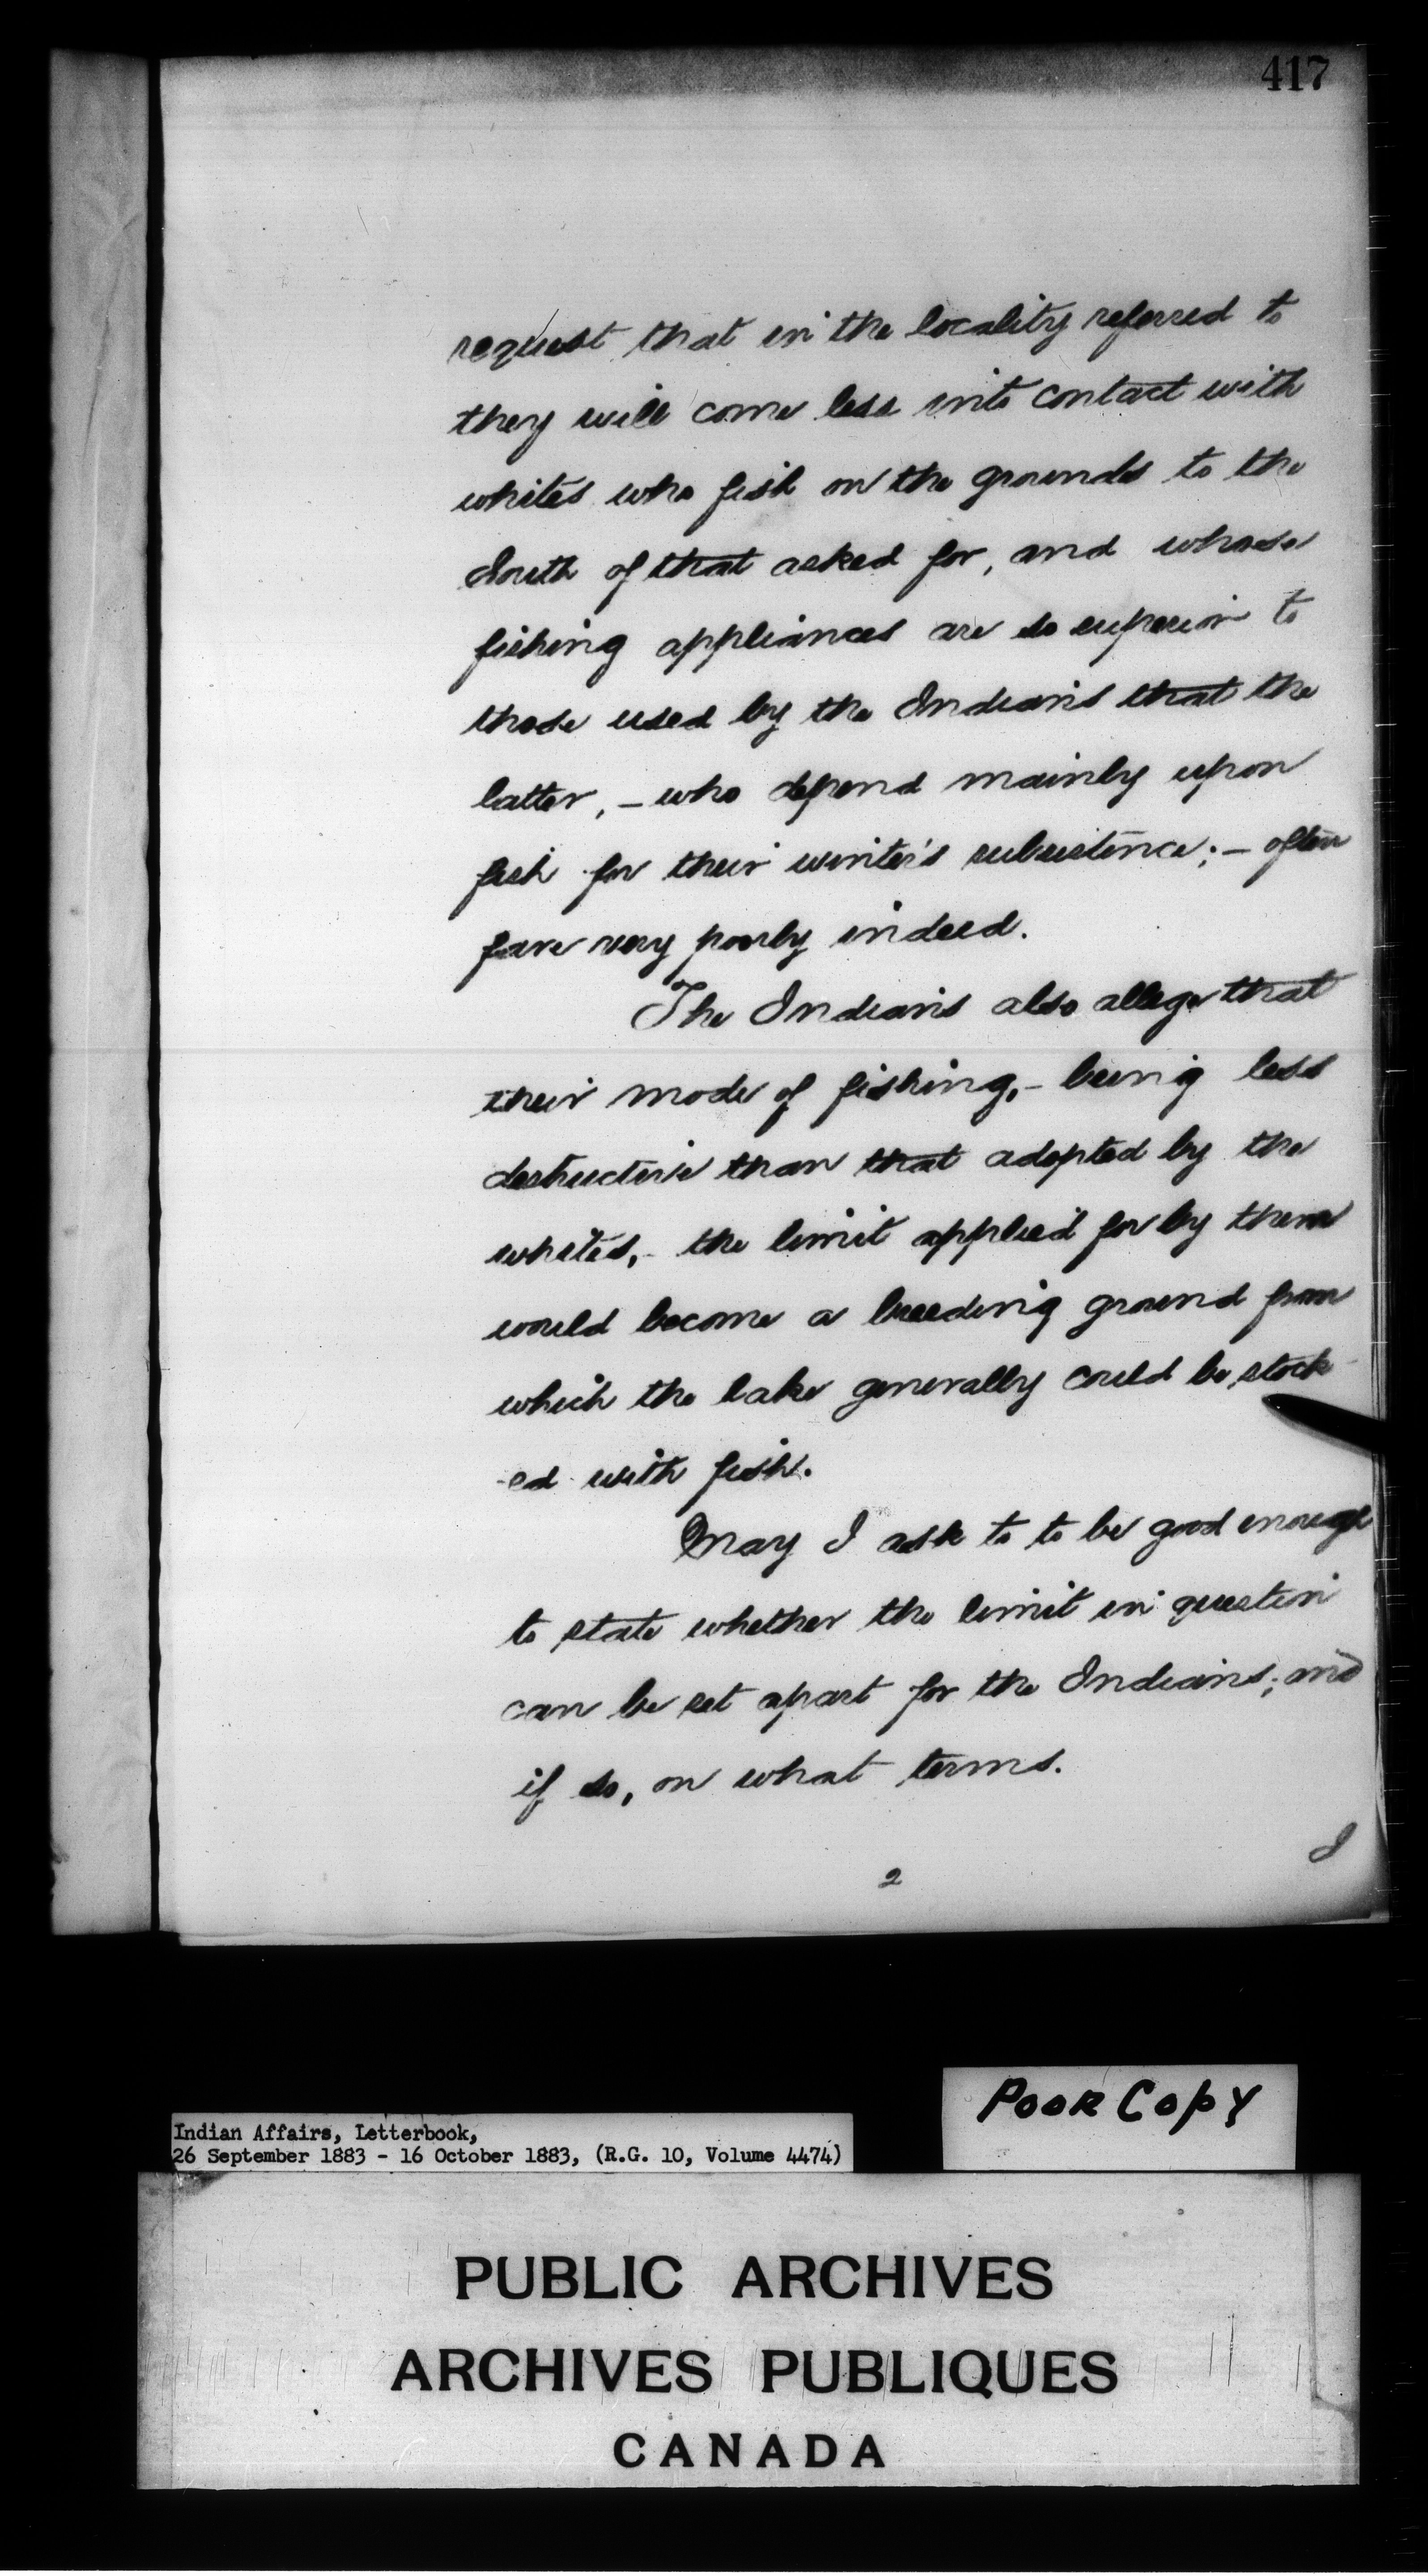 417
request that in the locality referred to
they will come less into contact with
whites who fish on the grounds to the
South of that asked for, and whose
fishing appliances are so superior to
those used by the Indians that the
latter, – who depend mainly upon
fish for their winter's subsistence; – often
fare very poorly indeed.
The Indians also allege that
their mode of fishing, – being less
destructive than that adopted by the
whites, – the limit applied for by them
would become a breeding ground from
which the lake generally could be stock
-ed with fish.
May I ask to to be good enough
to state whether the limit in question
can be set apart for the Indians; and
if so, on what terms.
I
2
Poor Copy
Indian Affairs, Letterbook,
26 September 1883 - 16 October 1883, (R.G. 10, Volume 4474)
PUBLIC ARCHIVES
ARCHIVES PUBLIQUES
CANADA